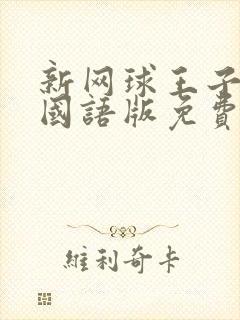 新网球王子
國語版免費
維利奇卡